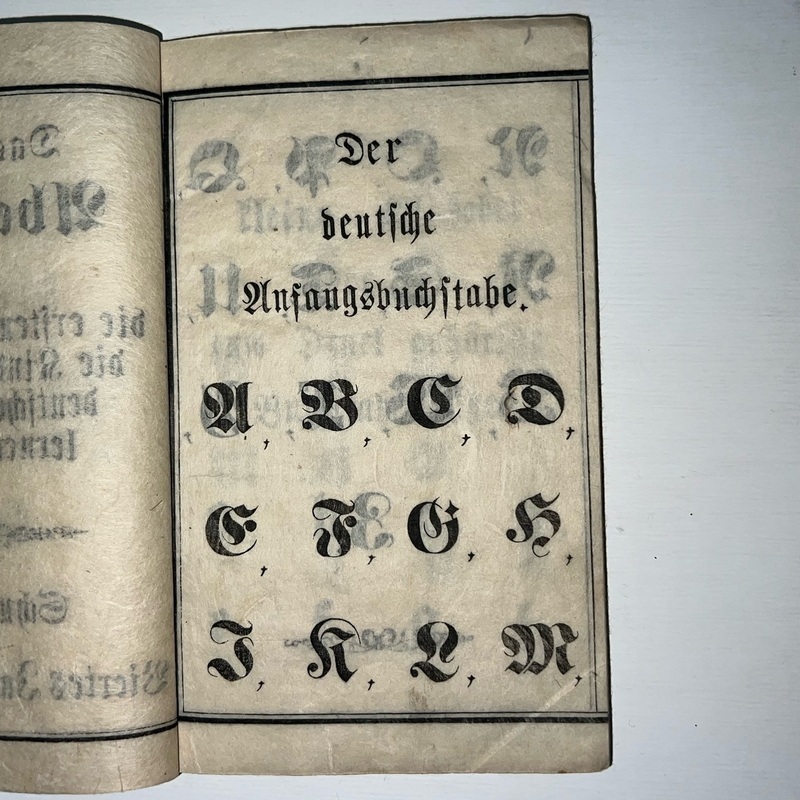 Der
deutsche
Anfangsbuchstabe.
A, B, C, D,
E, F, G, H,
I, K, L, M,